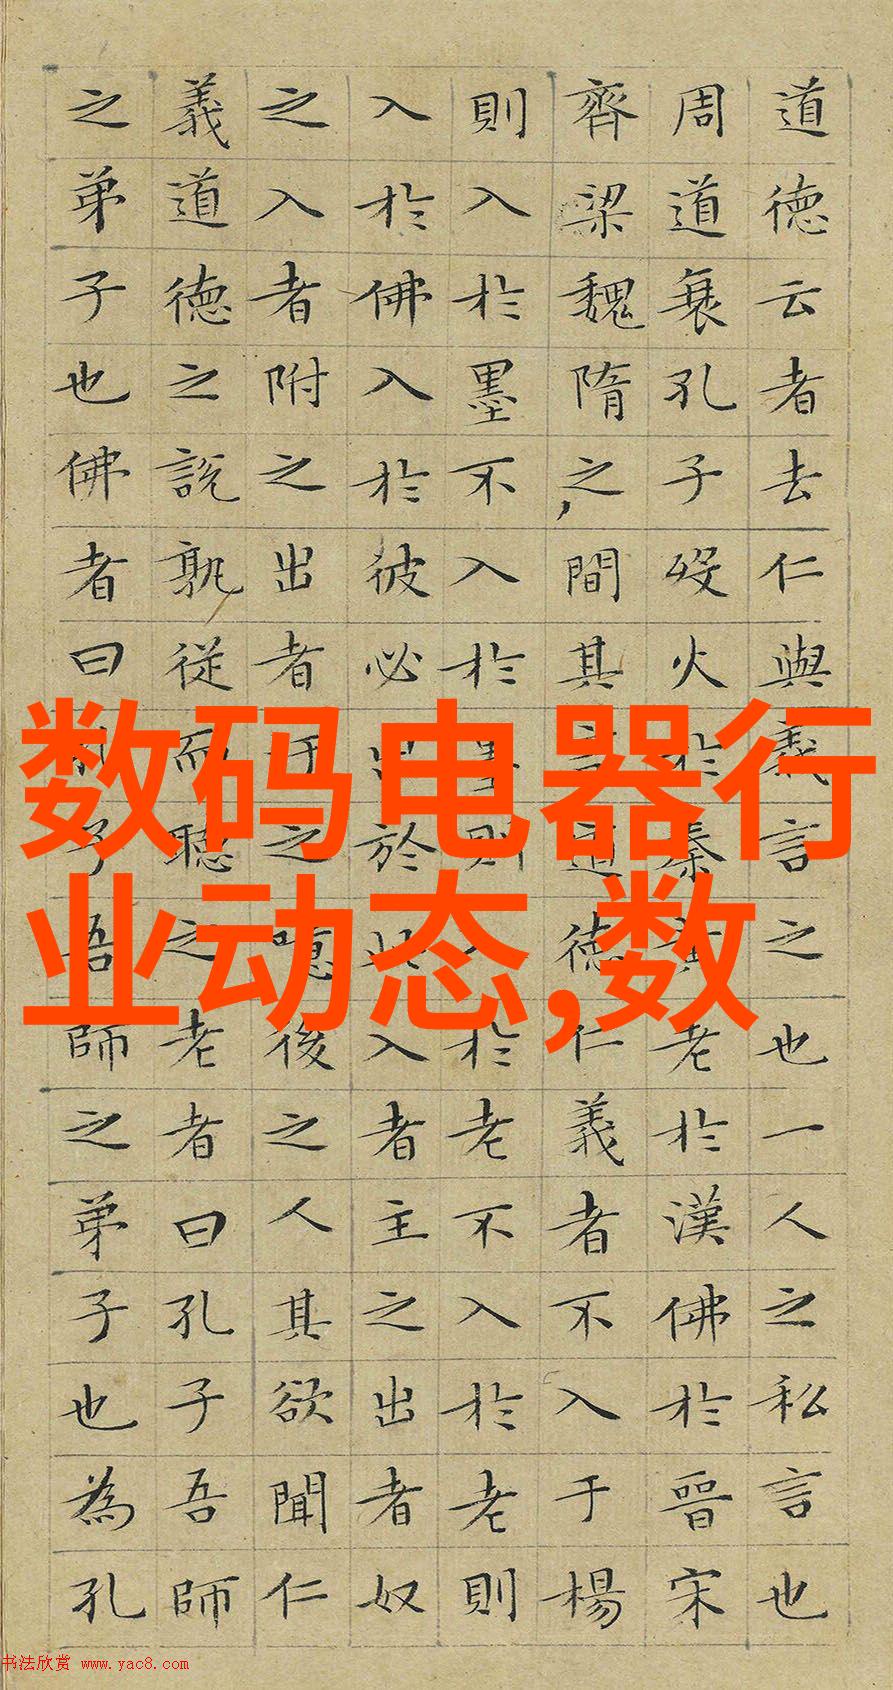 道德云者去仁與義言之也一人之私言也
周道衰孔子歿火於秦黃老於漢佛於晉宋
齊梁魏隋之間其言道德仁義者不入于楊
則入於墨不入於墨則入於老不入於老則
入於佛入於彼必出於此入者主之出者奴
之入者附之出者汙之噫後之人其欲聞仁
義道德之說孰從而聽之老者曰孔子吾師
之弟子也佛者曰孔子吾師之弟子也為孔
数码电器行
业动态,数
书法欣赏 www.yac8.com